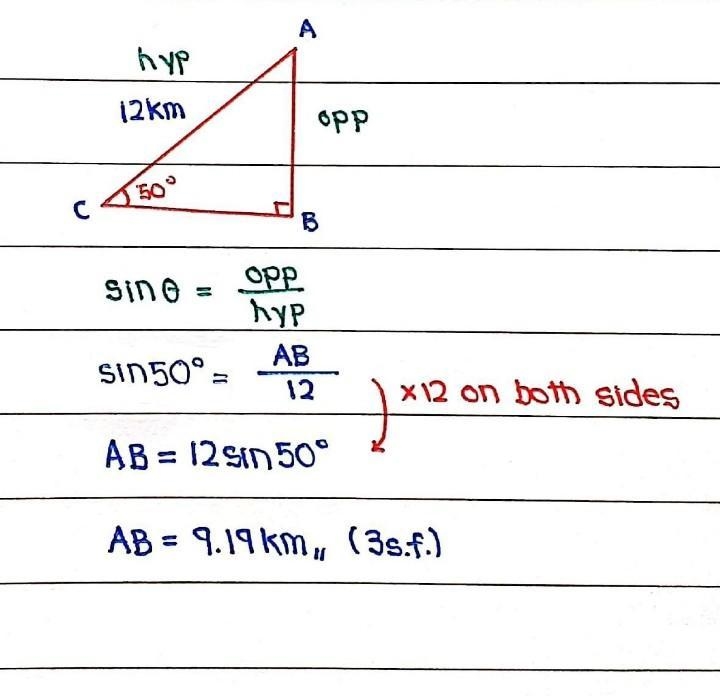 A
hyp
12km
opp
50°
C
B
sinθ = opp/hyp
sin50° = AB/12
×12 on both sides
AB = 12sin50°
AB = 9.19km,, (3s.f.)